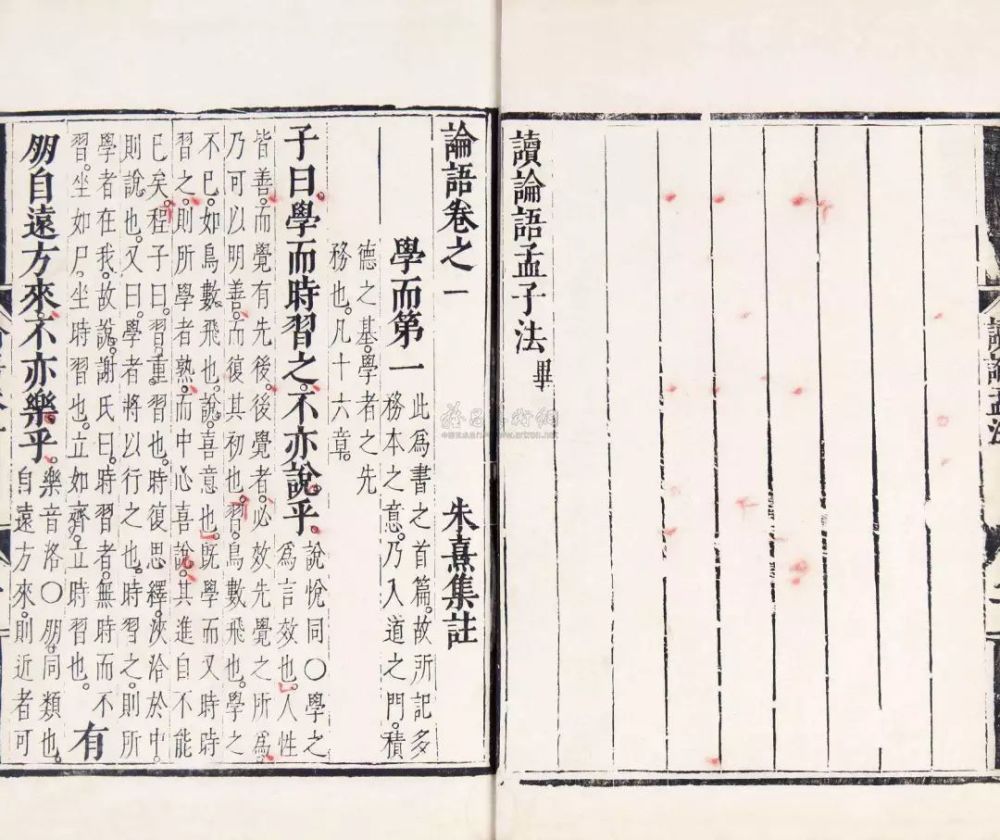 讀論孟法
讀論語孟子法畢
論語卷之一 朱熹集註
學而第一
此爲書之首篇。故所記多
務本之意。乃入道之門。積
德之基。學者之先
務也。凡十六章。
子曰。學而時習之。不亦說乎。
說悅同〇學之
爲言效也。人性
皆善。而覺有先後。後覺者。必效先覺之所爲。
乃可以明善。而復其初也。習。鳥數飛也。學之
不已。如鳥數飛也。說。喜意也。旣學而又時時
習之。則所學者熟。而中心喜說。其進自不能
已矣。程子曰。習。重習也。時復思繹。浹洽於中。
則說也。又曰。學者將以行之也。時習之。則所
學者在我。故說。謝氏曰。時習者。無時而不
習。坐如尸。坐時習也。立如齊。立時習也。
有
朋自遠方來。不亦樂乎。
樂音洛〇朋。同類也。
自遠方來。則近者可